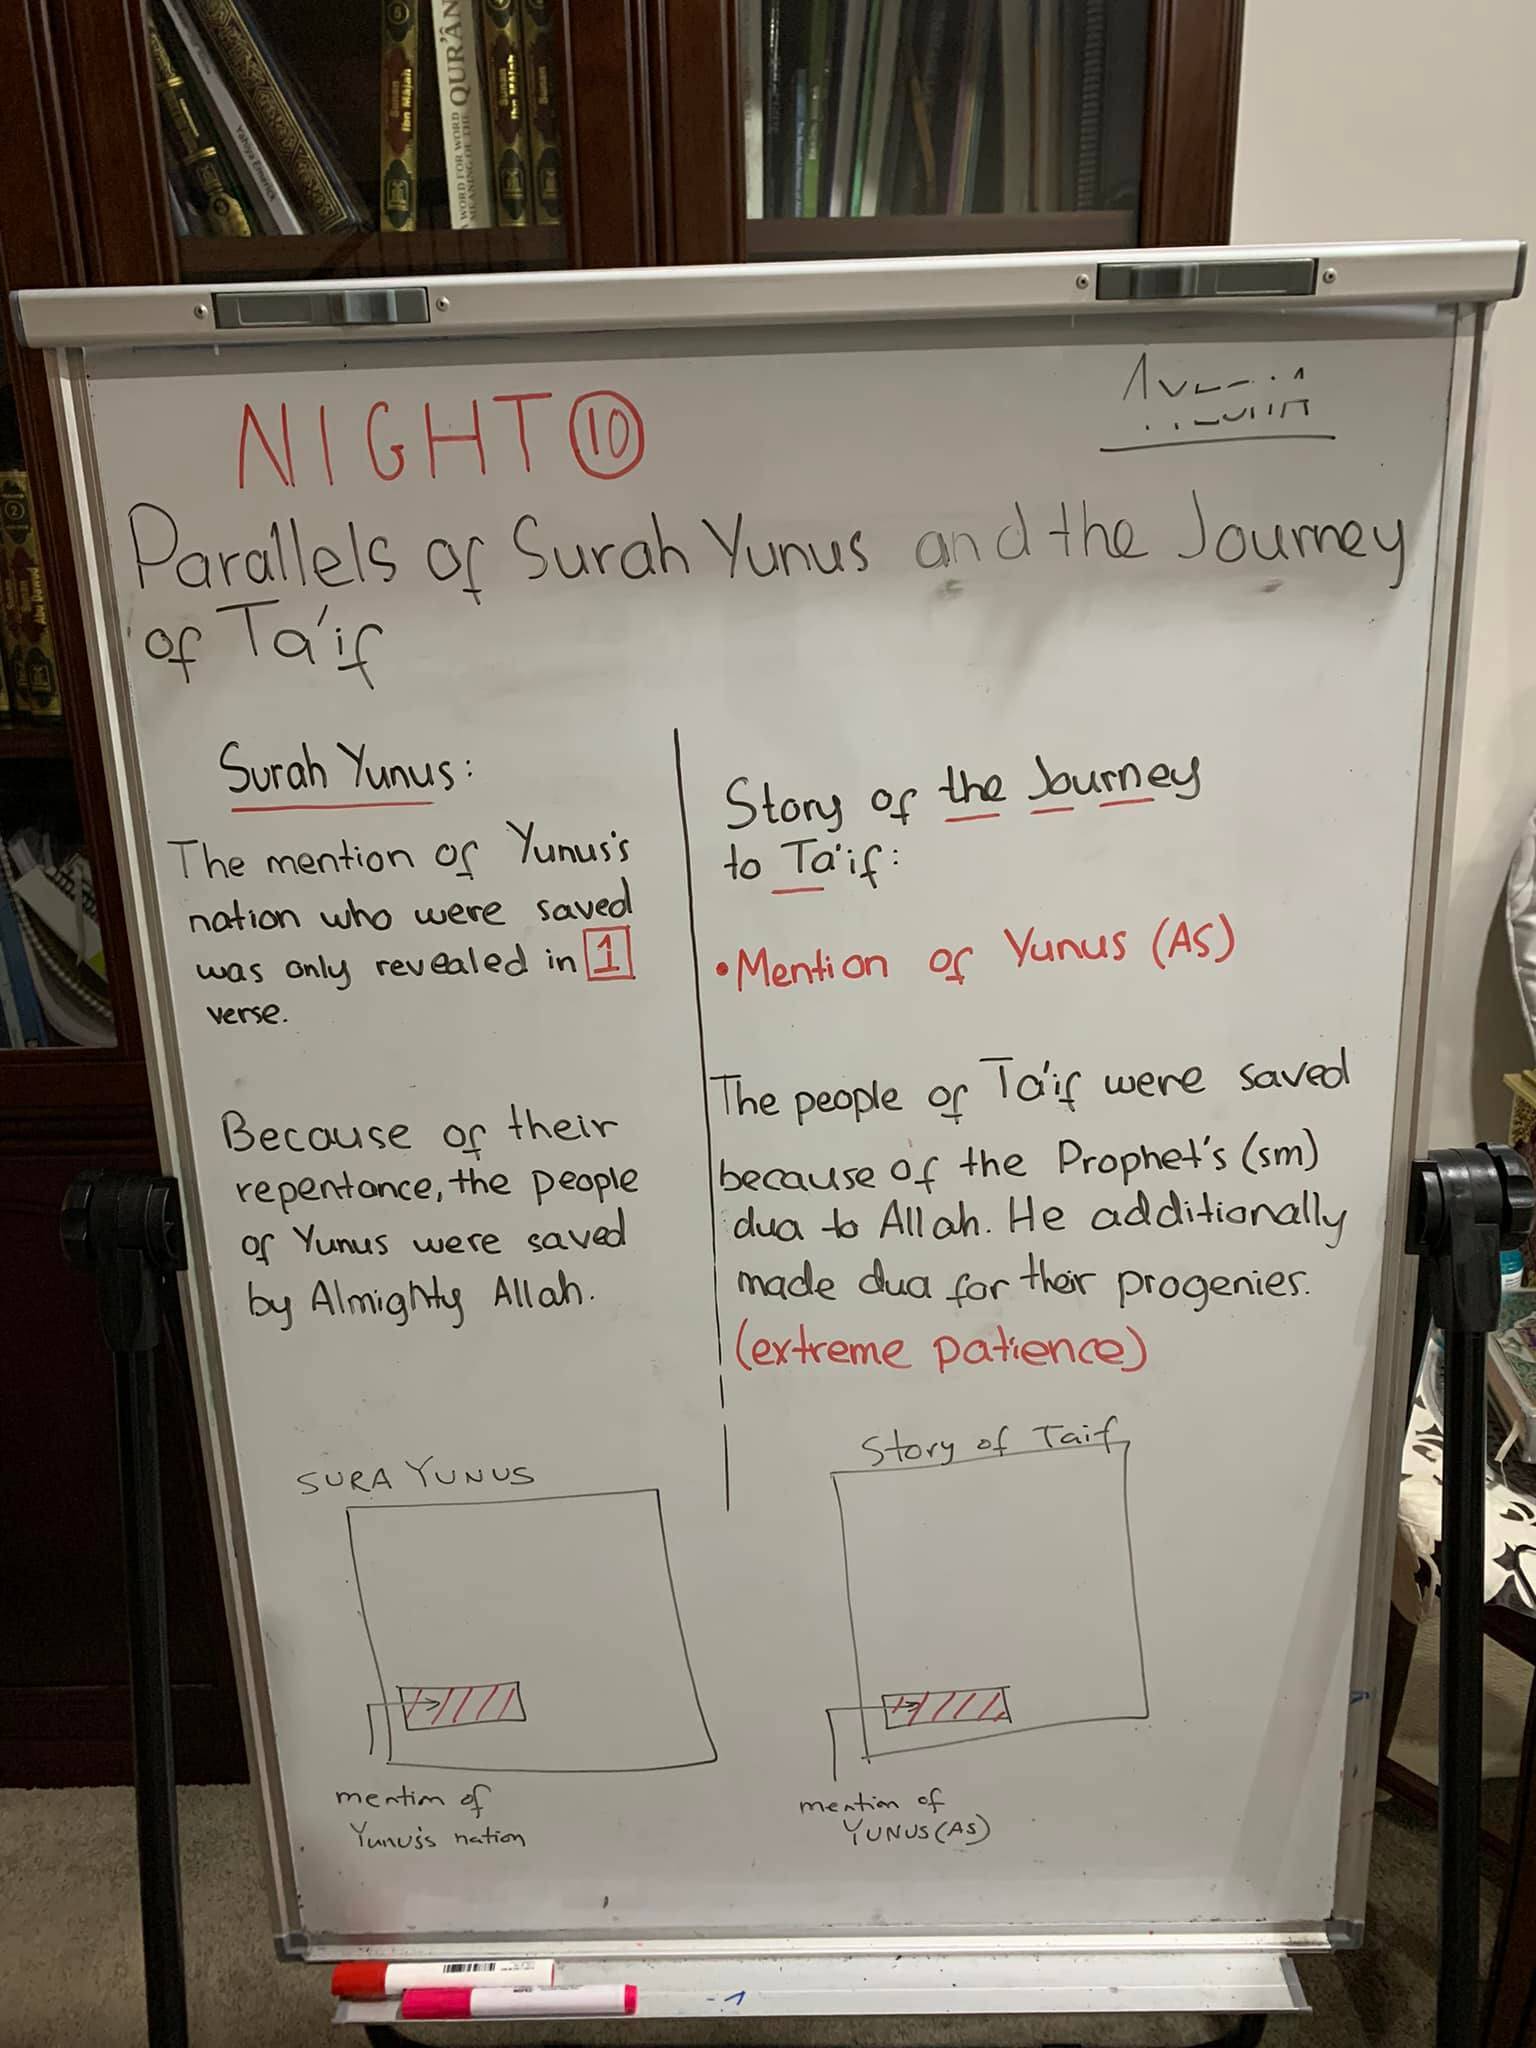 Sunan Ibn Majah
A WORD FOR WORD
MEANING OF THE QUR'ÂN
Sunan Ibn Majah
Sunan
Yahiya Emerick
2
Sunan Abu Dawud
NIGHT 10
Parallels of Surah Yunus and the Journey
of Ta'if
Surah Yunus:
The mention of Yunus's
nation who were saved
was only revealed in 1
verse.
Because of their
repentance, the people
of Yunus were saved
by Almighty Allah.
Story of the Journey
to Ta'if:
• Mention of Yunus (AS)
The people of Ta'if were saved
because of the Prophet's (sm)
dua to Allah. He additionally
made dua for their progenies.
(extreme patience)
SURA YUNUS
mention of
Yunus's nation
Story of Taif
mention of
YUNUS (AS)